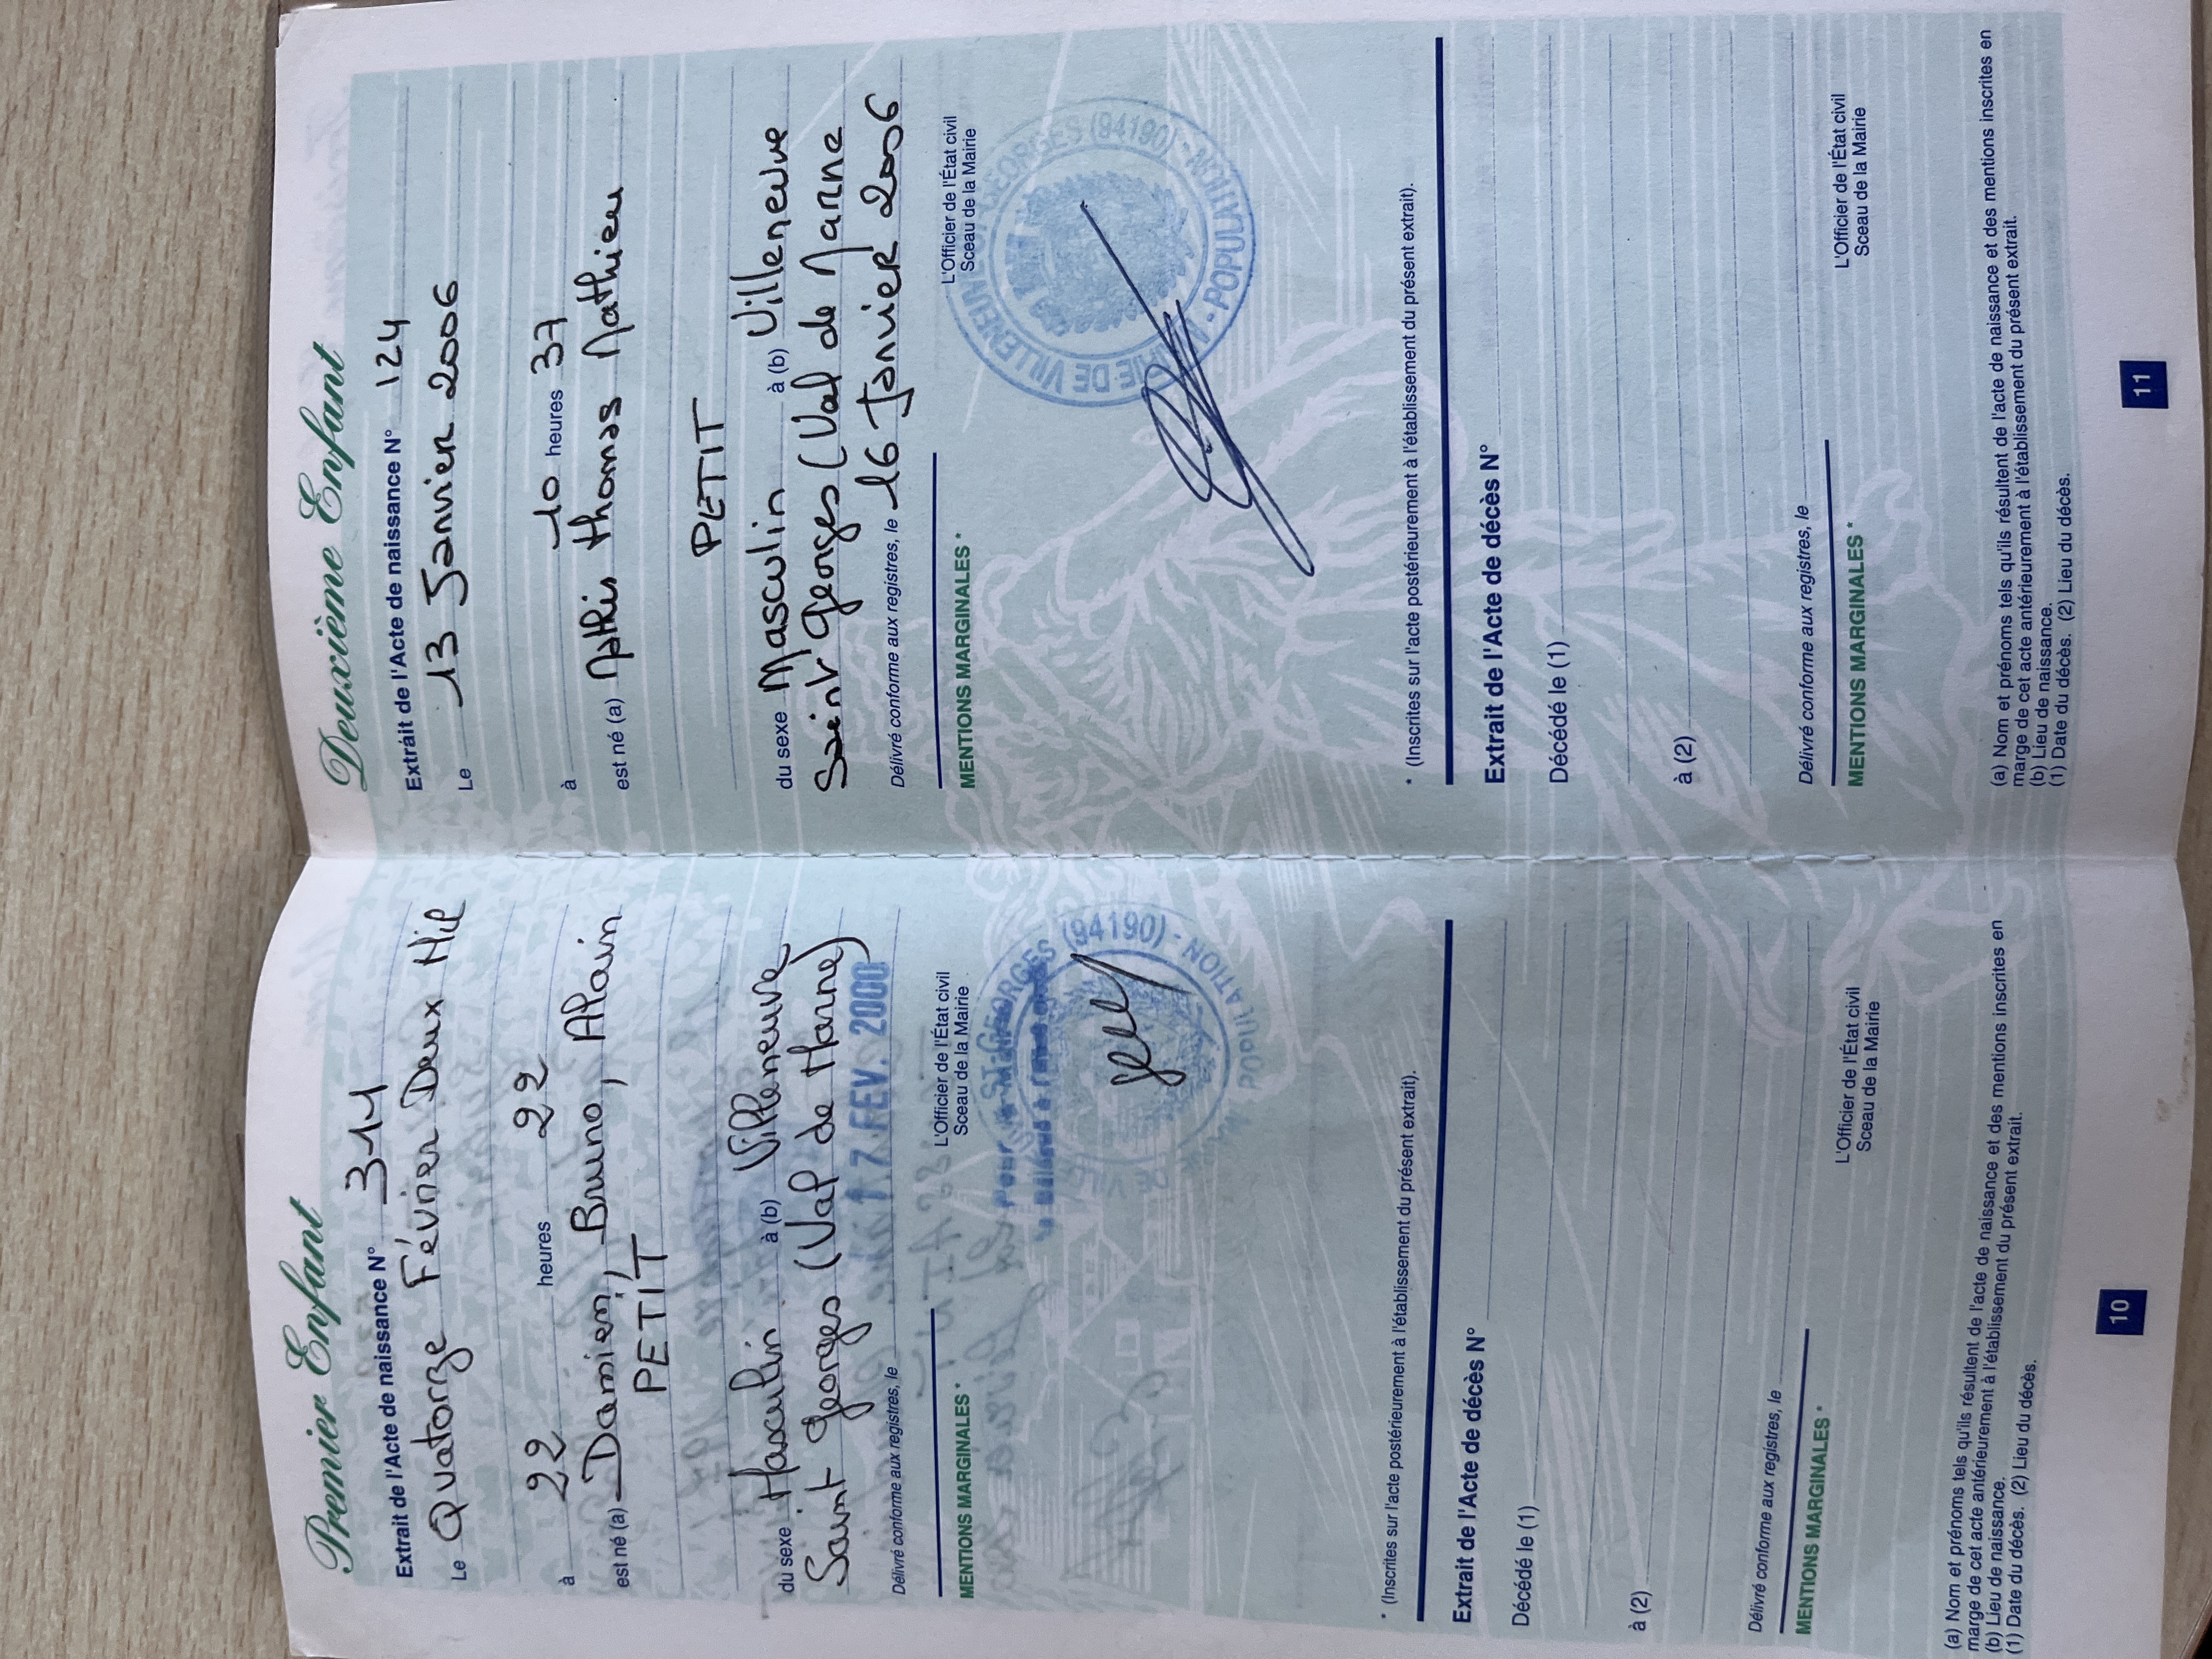 Premier Enfant
Extrait de l'Acte de naissance N° 311
Le Quatorze Février Deux Mil
à 22 heures 22
est né (a) Damien, Bruno, Alain
PETIT
du sexe Masculin à (b) Villeneuve
Saint Georges (Val de Marne)
Délivré conforme aux registres, le 17. FEV. 2000
L'Officier de l'État civil
Sceau de la Mairie
MENTIONS MARGINALES *
ST-GEORGES (94190) - POPULATION
* (Inscrites sur l'acte postérieurement à l'établissement du présent extrait).
Extrait de l'Acte de décès N°
Décédé le (1)
à (2)
Délivré conforme aux registres, le
L'Officier de l'État civil
Sceau de la Mairie
MENTIONS MARGINALES *
(a) Nom et prénoms tels qu'ils résultent de l'acte de naissance et des mentions inscrites en
marge de cet acte antérieurement à l'établissement du présent extrait.
(b) Lieu de naissance.
(1) Date du décès. (2) Lieu du décès.
10
Deuxième Enfant
Extrait de l'Acte de naissance N° 124
Le 13 Janvier 2006
à 10 heures 37
est né (a) Mathis Thomas Mathieu
PETIT
du sexe Masculin à (b) Villeneuve
Saint Georges (Val de Marne
Délivré conforme aux registres, le 16 Janvier 2006
L'Officier de l'État civil
Sceau de la Mairie
MENTIONS MARGINALES *
MAIRIE DE VILLENEUVE GEORGES (94190) - POPULATION
* (Inscrites sur l'acte postérieurement à l'établissement du présent extrait).
Extrait de l'Acte de décès N°
Décédé le (1)
à (2)
Délivré conforme aux registres, le
L'Officier de l'État civil
Sceau de la Mairie
MENTIONS MARGINALES *
(a) Nom et prénoms tels qu'ils résultent de l'acte de naissance et des mentions inscrites en
marge de cet acte antérieurement à l'établissement du présent extrait.
(b) Lieu de naissance.
(1) Date du décès. (2) Lieu du décès.
11